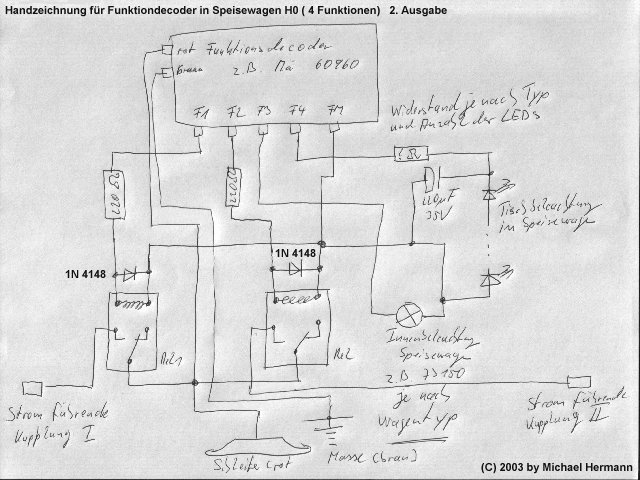 Handzeichnung für Funktiondecoder in Speisewagen H0 ( 4 Funktionen) 2. Ausgabe
rot Funktionsdecoder
braun z.B. Mä 60960
F1 F2 F3 F4
Widerstand je nach Typ
und Anzahl der LEDs
? Ω
35V
Tischbeleuchtung
im Speisewagen
1N 4148
1N 4148
Rel1
Rel2
Innenbeleuchtung
Speisewagen
z.B 73150
je nach
Wagentyp
Strom führende
Kupplung I
Strom führende
Kupplung II
Schleifer (rot)
Masse (braun)
(C) 2003 by Michael Hermann